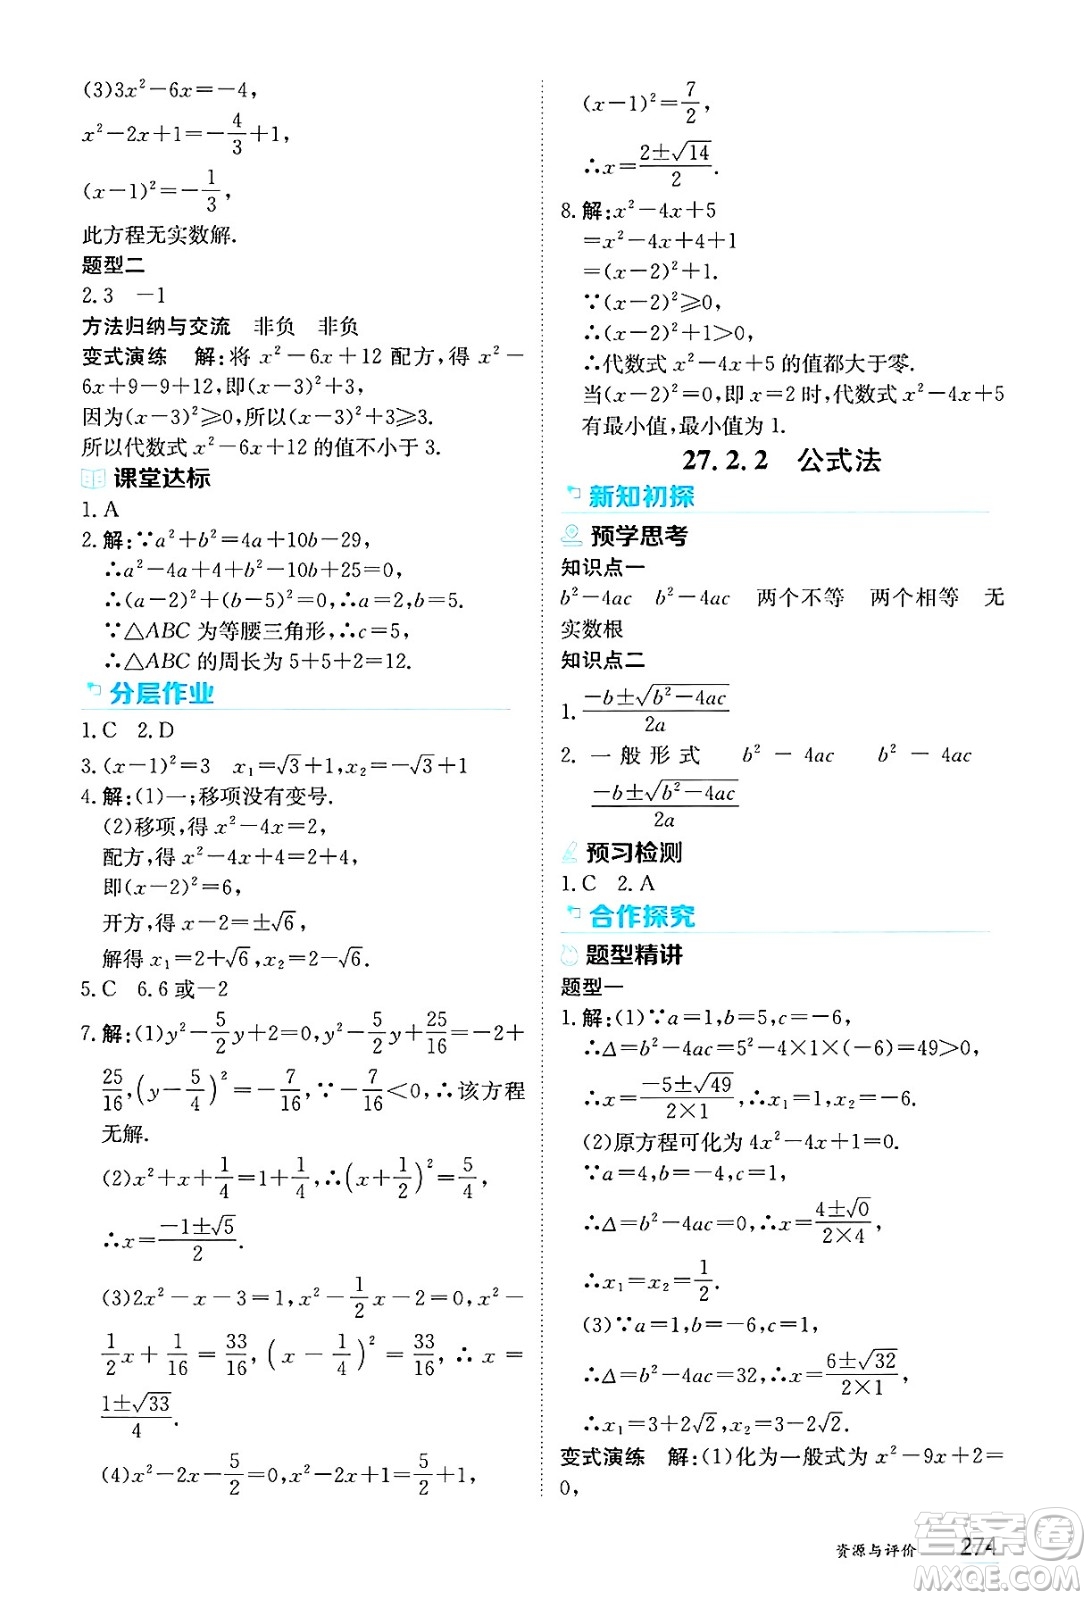 (3)3x²－6x＝－4,
x²－2x＋1＝－4/3＋1,
(x－1)²＝－1/3,
此方程无实数解.
题型二
2.3　－1
方法归纳与交流　非负　非负
变式演练　解:将 x²－6x＋12 配方,得 x²－
6x＋9－9＋12,即(x－3)²＋3,
因为(x－3)²≥0,所以(x－3)²＋3≥3.
所以代数式 x²－6x＋12 的值不小于 3.
课堂达标
1.A
2.解:∵a²＋b²＝4a＋10b－29,
∴a²－4a＋4＋b²－10b＋25＝0,
∴(a－2)²＋(b－5)²＝0,∴a＝2,b＝5.
∵△ABC 为等腰三角形,∴c＝5,
∴△ABC 的周长为 5＋5＋2＝12.
分层作业
1.C　2.D
3.(x－1)²＝3　x₁＝√3＋1,x₂＝－√3＋1
4.解:(1)一;移项没有变号.
(2)移项,得 x²－4x＝2,
配方,得 x²－4x＋4＝2＋4,
即(x－2)²＝6,
开方,得 x－2＝±√6,
解得 x₁＝2＋√6,x₂＝2－√6.
5.C　6.6 或－2
7.解:(1)y²－5/2y＋2＝0,y²－5/2y＋25/16＝－2＋
25/16,(y－5/4)²＝－7/16,∵－7/16＜0,∴该方程
无解.
(2)x²＋x＋1/4＝1＋1/4,∴(x＋1/2)²＝5/4,
∴x＝(－1±√5)/2.
(3)2x²－x－3＝1,x²－1/2x－2＝0,x²－
1/2x＋1/16＝33/16,(x－1/4)²＝33/16,∴x＝
(1±√33)/4.
(4)x²－2x－5/2＝0,x²－2x＋1＝5/2＋1,
(x－1)²＝7/2,
∴x＝(2±√14)/2.
8.解:x²－4x＋5
＝x²－4x＋4＋1
＝(x－2)²＋1.
∵(x－2)²≥0,
∴(x－2)²＋1＞0,
∴代数式 x²－4x＋5 的值都大于零.
当(x－2)²＝0,即 x＝2 时,代数式 x²－4x＋5
有最小值,最小值为 1.
27.2.2　公式法
新知初探
预学思考
知识点一
b²－4ac　b²－4ac　两个不等　两个相等　无
实数根
知识点二
1.(－b±√(b²－4ac))/2a
2.一般形式　b²－4ac　b²－4ac
(－b±√(b²－4ac))/2a
预习检测
1.C　2.A
合作探究
题型精讲
题型一
1.解:(1)∵a＝1,b＝5,c＝－6,
∴Δ＝b²－4ac＝5²－4×1×(－6)＝49＞0,
∴x＝(－5±√49)/(2×1),∴x₁＝1,x₂＝－6.
(2)原方程可化为 4x²－4x＋1＝0.
∵a＝4,b＝－4,c＝1,
∴Δ＝b²－4ac＝0,∴x＝(4±√0)/(2×4),
∴x₁＝x₂＝1/2.
(3)∵a＝1,b＝－6,c＝1,
∴Δ＝b²－4ac＝32,∴x＝(6±√32)/(2×1),
∴x₁＝3＋2√2,x₂＝3－2√2.
变式演练　解:(1)化为一般式为 x²－9x＋2＝
0,
资源与评价　274
答案圈
MXQE.COM